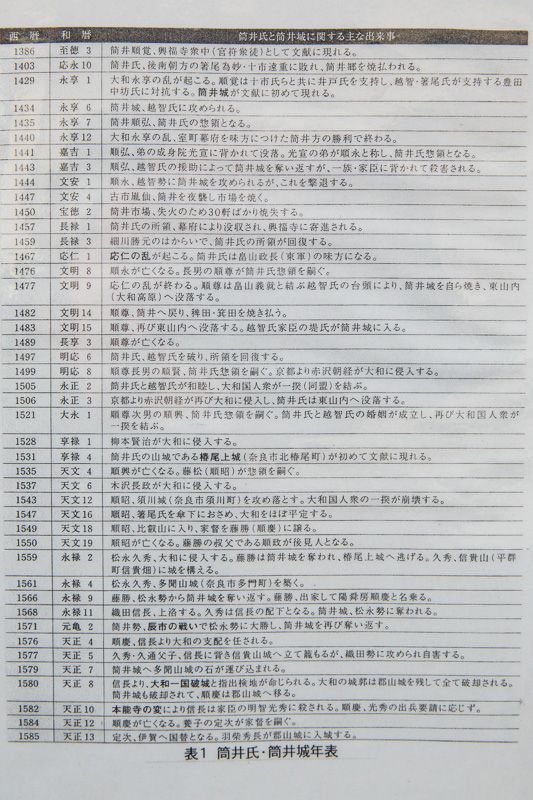 西 暦 和 暦 筒井氏と筒井城に関する主な出来事
1386 至徳 3 筒井順覚、興福寺衆中(官符衆徒)として文献に現れる。
1403 応永10 筒井氏、後南朝方の箸尾為妙・十市遠重に敗れ、筒井郷を焼払われる。
1429 永享 1 大和永享の乱が起こる。順覚は十市氏らと共に井戸氏を支持し、越智・箸尾氏が支持する豊田
中坊氏に対抗する。筒井城が文献に初めて現れる。
1434 永享 6 筒井城、越智氏に攻められる。
1435 永享 7 筒井順弘、筒井氏の惣領となる。
1440 永享12 大和永享の乱、室町幕府を味方につけた筒井方の勝利で終わる。
1441 嘉吉 1 順弘、弟の成身院光宣に背かれて没落。光宣の弟が順永と称し、筒井氏惣領となる。
1443 嘉吉 3 順弘、越智氏の援助によって筒井城を奪い返すが、一族・家臣に背かれて殺害される。
1444 文安 1 順永、越智勢に筒井城を攻められるが、これを撃退する。
1447 文安 4 古市胤仙、筒井を夜襲し市場を焼く。
1450 宝徳 2 筒井市場、失火のため30軒ばかり焼失する。
1457 長禄 1 筒井氏の所領、幕府により没収され、興福寺に寄進される。
1459 長禄 3 細川勝元のはからいで、筒井氏の所領が回復する。
1467 応仁 1 応仁の乱が起こる。筒井氏は畠山政長(東軍)の味方になる。
1476 文明 8 順永が亡くなる。長男の順尊が筒井氏惣領を嗣ぐ。
1477 文明 9 応仁の乱が終わる。順尊は畠山義就と結ぶ越智氏の台頭により、筒井城を自ら焼き、東山内
(大和高原)へ没落する。
1482 文明14 順尊、筒井へ戻り、稗田・箕田を焼き払う。
1483 文明15 順尊、再び東山内へ没落する。越智氏家臣の堤氏が筒井城に入る。
1489 長享 3 順尊が亡くなる。
1497 明応 6 筒井氏、越智氏を破り、所領を回復する。
1499 明応 8 順尊長男の順賢、筒井氏惣領を嗣ぐ。京都より赤沢朝経が大和に侵入する。
1505 永正 2 筒井氏と越智氏が和睦し、大和国人衆が一揆(同盟)を結ぶ。
1506 永正 3 京都より赤沢朝経が再び大和に侵入し、筒井氏は東山内へ没落する。
1521 大永 1 順尊次男の順興、筒井氏惣領を嗣ぐ。筒井氏と越智氏の婚姻が成立し、再び大和国人衆が
一揆を結ぶ。
1528 享禄 1 柳本賢治が大和に侵入する。
1531 享禄 4 筒井氏の山城である椿尾上城(奈良市北椿尾町)が初めて文献に現れる。
1535 天文 4 順興が亡くなる。藤松(順昭)が惣領を嗣ぐ。
1537 天文 6 木沢長政が大和に侵入する。
1543 天文12 順昭、須川城(奈良市須川町)を攻め落とす。大和国人衆の一揆が崩壊する。
1547 天文16 順昭、箸尾氏を傘下におさめ、大和をほぼ平定する。
1549 天文18 順昭、比叡山に入り、家督を藤勝(順慶)に譲る。
1550 天文19 順昭が亡くなる。藤勝の叔父である順政が後見人となる。
1559 永禄 2 松永久秀、大和に侵入する。藤勝は筒井城を奪われ、椿尾上城へ逃げる。久秀、信貴山(平群
町信貴畑)に城を構える。
1561 永禄 4 松永久秀、多聞山城(奈良市多門町)を築く。
1566 永禄 9 藤勝、松永勢から筒井城を奪い返す。藤勝、出家して陽舜房順慶と名乗る。
1568 永禄11 織田信長、上洛する。久秀は信長の配下となる。筒井城、松永勢に奪われる。
1571 元亀 2 筒井勢、辰市の戦いで松永勢に大勝し、筒井城を再び奪い返す。
1576 天正 4 順慶、信長より大和の支配を任される。
1577 天正 5 久秀・久通父子、信長に背き信貴山城へ立て籠もるが、織田勢に攻められ自害する。
1579 天正 7 筒井城へ多聞山城の石が運び込まれる。
1580 天正 8 信長より、大和一国破城と指出検地が命じられる。大和の城郭は郡山城を残して全て破却される。
筒井城も破却されて、順慶は郡山城へ移る。
1582 天正10 本能寺の変により信長は家臣の明智光秀に殺される。順慶、光秀の出兵要請に応じず。
1584 天正12 順慶が亡くなる。養子の定次が家督を嗣ぐ。
1585 天正13 定次、伊賀へ国替となる。羽柴秀長が郡山城に入城する。
表1 筒井氏・筒井城年表